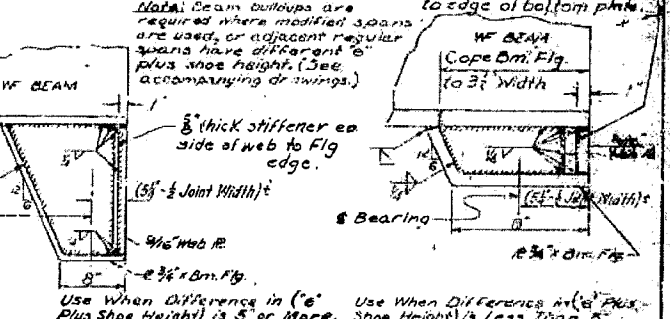 Note: Beam buildups are
required where modified spans
are used, or adjacent regular
spans have different "e"
plus shoe height. (See
accompanying drawings.)
to edge of bottom plate.
WF BEAM
Cope Bm. Flg.
to 3½" Width
1"
WF BEAM
1"
thick stiffener ea.
side of web to Flg
edge.
12
6
(5½"-½ Joint Width)±
5/16" Web PL
PL ¾" x Bm. Flg.
8"
12
6
¢ Bearing
(5½"-½ Joint Width)±
8"
PL ¾" x Bm. Flg.
Use When Difference in ("e"
Plus Shoe Height) is 5" or More.
Use When Difference in ("e" Plus
Shoe Height) is Less Than 5"